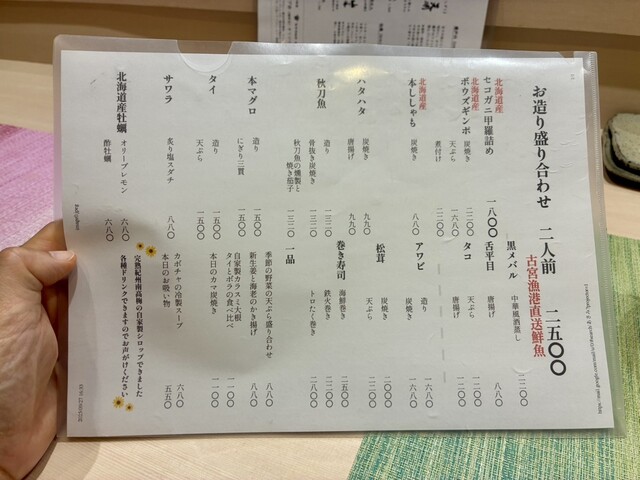 お造り盛り合わせ 二人前 二五〇〇
北海道産
セコガニ甲羅詰め 一八〇〇
北海道産
ボウズギンポ 炭焼き 二二〇〇
天ぷら 一六八〇
煮付け 二二〇〇
北海道産
本ししゃも 炭焼き 八八〇
ハタハタ 炭焼き 九九〇
唐揚げ 九九〇
秋刀魚 造り 一三二〇
骨抜き炭焼き 一三二〇
秋刀魚の燻製と
焼き茄子 一三二〇
本マグロ 造り 一五〇〇
にぎり三貫 一五〇〇
タイ 造り 一五〇〇
天ぷら 一五〇〇
サワラ 炙り塩スダチ 八八〇
北海道産牡蠣 オリーブレモン 六八〇
酢牡蠣 六八〇
古宮漁港直送鮮魚
黒メバル 中華風酒蒸し 二二〇〇
舌平目 唐揚げ 八八〇
タコ 天ぷら 一二〇〇
唐揚げ 一二〇〇
アワビ 造り 一六八〇
炭焼き 一六八〇
松茸 炭焼き 二〇〇〇
天ぷら 二二〇〇
巻き寿司 海鮮巻き 二五〇〇
鉄火巻き 二二〇〇
トロたく巻き 一八〇〇
一品
季節の野菜の天ぷら盛り合わせ 八八〇
新生姜と海老のかき揚げ 八八〇
自家製カラスミ大根
タイとボラの食べ比べ 一一〇〇
本日のカマ炭焼き 一一〇〇
カボチャの冷製スープ 六八〇
本日のお吸い物 五五〇
完熟紀州南高梅の自家製シロップできました
各種ドリンクできますのでお声がけください